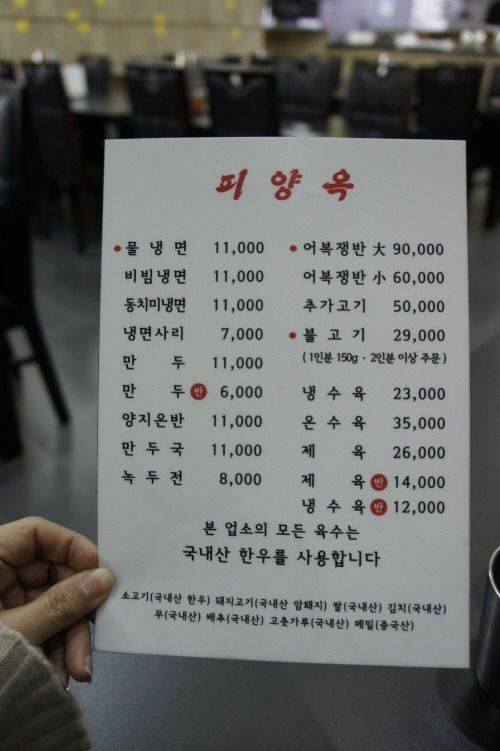 피양옥
물냉면 11,000
비빔냉면 11,000
동치미냉면 11,000
냉면사리 7,000
만두 11,000
만두 반 6,000
양지온반 11,000
만두국 11,000
녹두전 8,000
어복쟁반 大 90,000
어복쟁반 小 60,000
추가고기 50,000
불고기 29,000
( 1인분 150g · 2인분 이상 주문 )
냉수육 23,000
온수육 35,000
제육 26,000
제육 반 14,000
냉수육 반 12,000
본 업소의 모든 육수는
국내산 한우를 사용합니다
소고기(국내산 한우) 돼지고기(국내산 암퇘지) 쌀(국내산) 김치(국내산)
무(국내산) 배추(국내산) 고춧가루(국내산) 메밀(중국산)